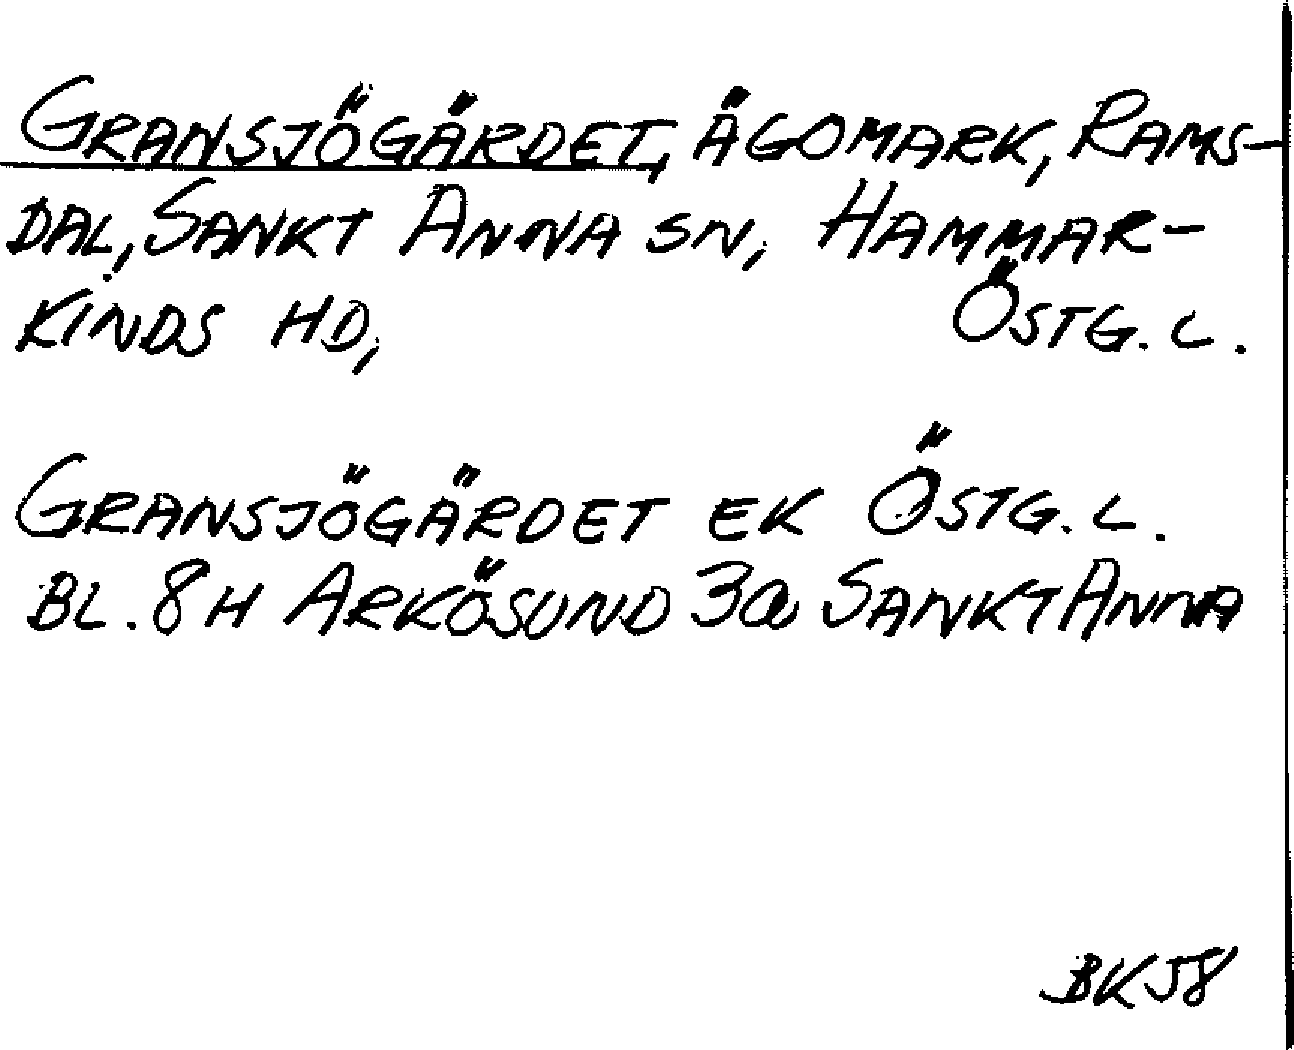 GRANSJÖGÄRDET, ÄGOMARK, RAMS-
DAL, SANKT ANNA SN, HAMMAR-
KINDS HD, ÖSTG. L.
GRANSJÖGÄRDET EK ÖSTG. L.
BL. 8H ARKÖSUND 3a SANKT ANNA
BK 58